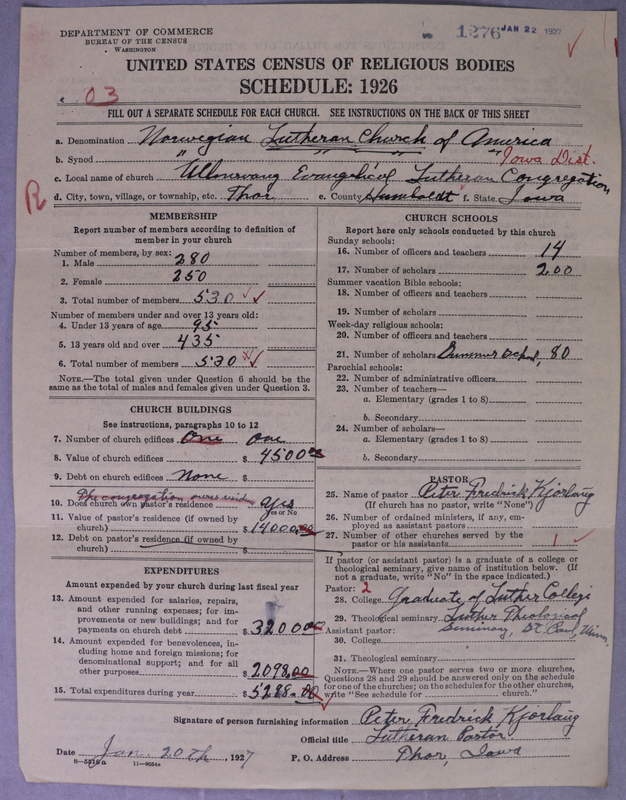 DEPARTMENT OF COMMERCE
BUREAU OF THE CENSUS
WASHINGTON
1276 JAN 22 1927
UNITED STATES CENSUS OF RELIGIOUS BODIES
SCHEDULE: 1926
03
FILL OUT A SEPARATE SCHEDULE FOR EACH CHURCH. SEE INSTRUCTIONS ON THE BACK OF THIS SHEET
a. Denomination Norwegian Lutheran Church of America
b. Synod " " " " Iowa Dist.
c. Local name of church Ullensvang Evangelical Lutheran Congregation
R
d. City, town, village, or township, etc. Thor e. County Humboldt f. State Iowa
MEMBERSHIP
Report number of members according to definition of member in your church
Number of members, by sex:
1. Male 280
2. Female 250
3. Total number of members 530
Number of members under and over 13 years old:
4. Under 13 years of age 95
5. 13 years old and over 435
6. Total number of members 530
NOTE.—The total given under Question 6 should be the same as the total of males and females given under Question 3.
CHURCH BUILDINGS
See instructions, paragraphs 10 to 12
7. Number of church edifices One one
8. Value of church edifices $ 4500
9. Debt on church edifices None $
10. Does church own pastor's residence yes
Yes or No
11. Value of pastor's residence (if owned by church) $ 14000.00
12. Debt on pastor's residence (if owned by church) $
EXPENDITURES
Amount expended by your church during last fiscal year
13. Amount expended for salaries, repairs, and other running expenses; for improvements or new buildings; and for payments on church debt $ 3200.00
14. Amount expended for benevolences, including home and foreign missions; for denominational support; and for all other purposes $ 2098.00
15. Total expenditures during year $ 5288.00
CHURCH SCHOOLS
Report here only schools conducted by this church
Sunday schools:
16. Number of officers and teachers 14
17. Number of scholars 200
Summer vacation Bible schools:
18. Number of officers and teachers
19. Number of scholars
Week-day religious schools:
20. Number of officers and teachers
21. Number of scholars Summer School, 80
Parochial schools:
22. Number of administrative officers
23. Number of teachers—
a. Elementary (grades 1 to 8)
b. Secondary
24. Number of scholars—
a. Elementary (grades 1 to 8)
b. Secondary
PASTOR
25. Name of pastor Peter Fredrick Kjorlaug
(If church has no pastor, write "None")
26. Number of ordained ministers, if any, employed as assistant pastors
27. Number of other churches served by the pastor or his assistants 1
If pastor (or assistant pastor) is a graduate of a college or theological seminary, give name of institution below. (If not a graduate, write "No" in the space indicated.)
Pastor: 2
28. College Graduate of Luther College
29. Theological seminary Luther Theological
Assistant pastor: Seminary, St. Paul, Minn.
30. College
31. Theological seminary
NOTE.—Where one pastor serves two or more churches, Questions 28 and 29 should be answered only on the schedule for one of the churches; on the schedules for the other churches, write "See schedule for church."
Signature of person furnishing information Peter Fredrick Kjorlaug
Official title Lutheran Pastor.
Date Jan. 20th, 1927 P. O. Address Thor, Iowa
8—5316a 11—9054a